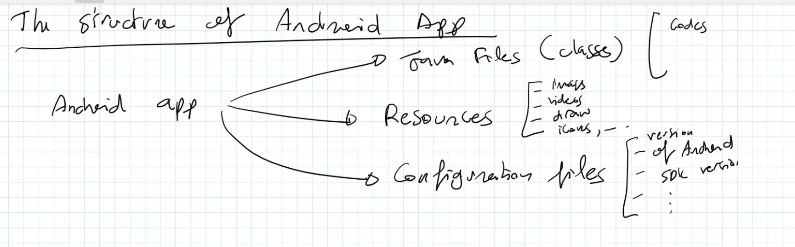 The structure of Android App
Java Files (classes)
Codes
Android app
Resources
- Images
- videos
- draw
- icons, - ..
Configuration files
- version of Android
- SDK version
- :